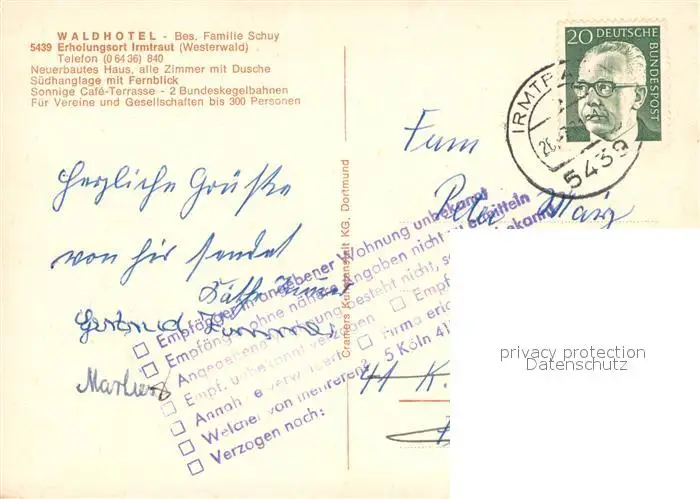 WALDHOTEL - Bes. Familie Schuy
5439 Erholungsort Irmtraut (Westerwald)
Telefon (0 64 36) 840
Neuerbautes Haus, alle Zimmer mit Dusche
Südhanglage mit Fernblick
Sonnige Café-Terrasse - 2 Bundeskegelbahnen
Für Vereine und Gesellschaften bis 300 Personen
20 DEUTSCHE
BUNDESPOST
5439
Herzliche Grüße
von hier sendet
Käthe
Gertrud
Fam
Peter
Cramers Kunstanstalt KG, Dortmund
Empfänger in angebener Wohnung unbekannt
Empfänger ohne nähere Angaben nicht zu ermitteln
Angegebene Wohnung besteht nicht,
Empf. unbekannt verzogen
Empf
Annahme verweigert
Firma
Welcher von mehreren?
5 Köln 41
Verzogen nach:
41 K.
privacy protection
Datenschutz